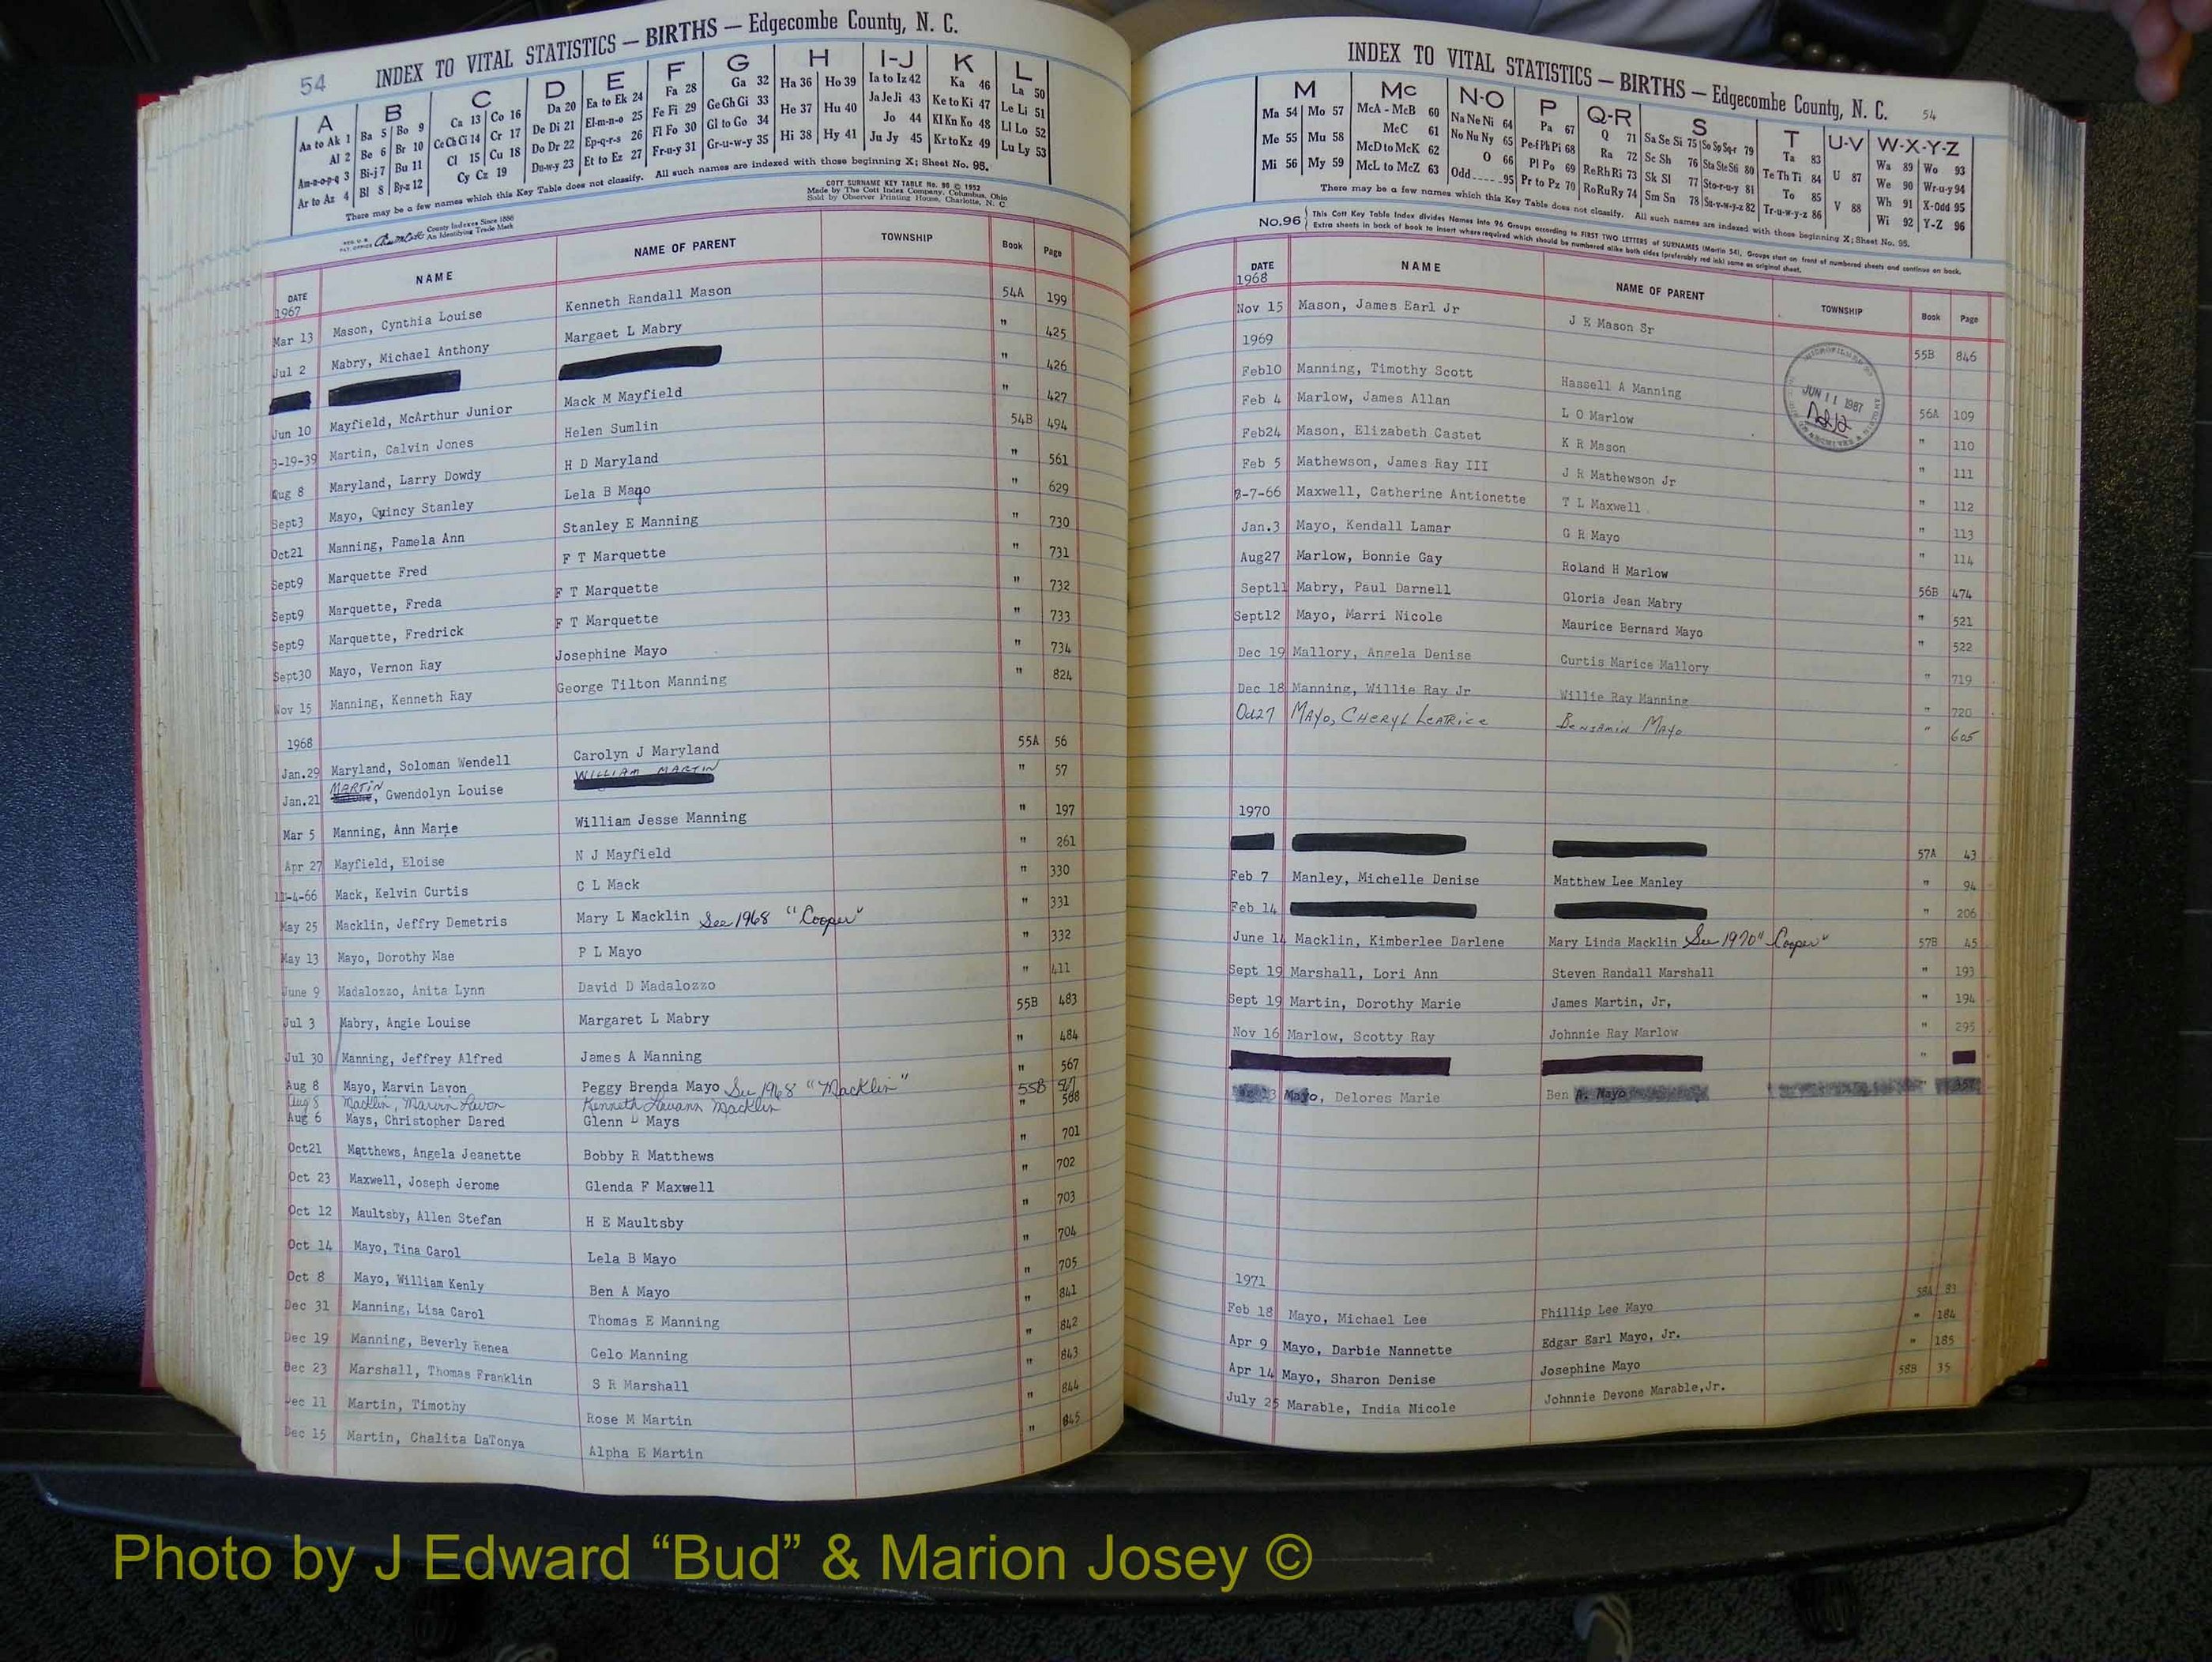 54
INDEX TO VITAL STATISTICS — BIRTHS — Edgecombe County, N. C.
A B C D E F G H I-J K L
Aa to Ak 1 Ba 5 Bo 9 Ca 13 Co 16 Da 20 Ea to Ek 24 Fa 28 Ga 32 Ha 36 Ho 39 Ia to Iz 42 Ka 46 La 50
Al 2 Be 6 Br 10 Ce Ch Ci 14 Cr 17 De Di 21 El-m-n-o 25 Fe Fi 29 Ge Gh Gi 33 He 37 Hu 40 Ja Je Ji 43 Ke to Ki 47 Le Li 51
Am-n-o-p-q 3 Bi-j 7 Bu 11 Cl 15 Cu 18 Do Dr 22 Ep-q-r-s 26 Fl Fo 30 Gl to Go 34 Hi 38 Hy 41 Jo 44 Kl Kn Ko 48 Ll Lo 52
Ar to Az 4 Bl 8 By-z 12 Cy Cz 19 Du-w-y 23 Et to Ez 27 Fr-u-y 31 Gr-u-w-y 35 Ju Jy 45 Kr to Kz 49 Lu Ly 53
There may be a few names which this Key Table does not classify. All such names are indexed with those beginning X; Sheet No. 95.
COTT SURNAME KEY TABLE No. 96 © 1952
Made by The Cott Index Company, Columbus, Ohio
Sold by Observer Printing House, Charlotte, N. C
County Indexes Since 1888
An Identifying Trade Mark
DATE NAME NAME OF PARENT TOWNSHIP Book Page
1967
Mar 13 Mason, Cynthia Louise Kenneth Randall Mason 54A 199
Jul 2 Mabry, Michael Anthony Margaet L Mabry " 425
" 426
Jun 10 Mayfield, McArthur Junior Mack M Mayfield " 427
3-19-39 Martin, Calvin Jones Helen Sumlin 54B 494
Aug 8 Maryland, Larry Dowdy H D Maryland " 561
Sept3 Mayo, Quincy Stanley Lela B Mayo " 629
Oct21 Manning, Pamela Ann Stanley E Manning " 730
Sept9 Marquette Fred F T Marquette " 731
Sept9 Marquette, Freda F T Marquette " 732
Sept9 Marquette, Fredrick F T Marquette " 733
Sept30 Mayo, Vernon Ray Josephine Mayo " 734
Nov 15 Manning, Kenneth Ray George Tilton Manning " 824
1968
Jan.29 Maryland, Soloman Wendell Carolyn J Maryland 55A 56
Jan.21 MARTIN, Gwendolyn Louise WILLIAM MARTIN " 57
Mar 5 Manning, Ann Marie William Jesse Manning " 197
Apr 27 Mayfield, Eloise N J Mayfield " 261
11-4-66 Mack, Kelvin Curtis C L Mack " 330
May 25 Macklin, Jeffry Demetris Mary L Macklin See 1968 "Cooper" " 331
May 13 Mayo, Dorothy Mae P L Mayo " 332
June 9 Madalozzo, Anita Lynn David D Madalozzo " 411
Jul 3 Mabry, Angie Louise Margaret L Mabry 55B 483
Jul 30 Manning, Jeffrey Alfred James A Manning " 484
Aug 8 Mayo, Marvin Lavon Peggy Brenda Mayo See 1968 "Macklin" " 567
Aug 8 Macklin, Marvin Lavon Kenneth Lavann Macklin 55B 567
Aug 6 Mays, Christopher Dared Glenn D Mays " 568
Oct21 Matthews, Angela Jeanette Bobby R Matthews " 701
Oct 23 Maxwell, Joseph Jerome Glenda F Maxwell " 702
Oct 12 Maultsby, Allen Stefan H E Maultsby " 703
Oct 14 Mayo, Tina Carol Lela B Mayo " 704
Oct 8 Mayo, William Kenly Ben A Mayo " 705
Dec 31 Manning, Lisa Carol Thomas E Manning " 841
Dec 19 Manning, Beverly Renea Celo Manning " 842
Dec 23 Marshall, Thomas Franklin S R Marshall " 843
Dec 11 Martin, Timothy Rose M Martin " 844
Dec 15 Martin, Chalita DaTonya Alpha E Martin " 845
INDEX TO VITAL STATISTICS — BIRTHS — Edgecombe County, N. C.
54
M Mc N-O P Q-R S T U-V W-X-Y-Z
Ma 54 Mo 57 McA - McB 60 Na Ne Ni 64 Pa 67 Q 71 Sa Se Si 75 So Sp Sq-r 79 Ta 83 U 87 Wa 89 Wo 93
Me 55 Mu 58 McC 61 No Nu Ny 65 Pe-f Ph Pi 68 Ra 72 Sc Sh 76 Sta Ste Sti 80 Te Th Ti 84 V 88 We 90 Wr-u-y 94
Mi 56 My 59 McD to McK 62 O 66 Pl Po 69 Re Rh Ri 73 Sk Sl 77 Sto-r-u-y 81 To 85 Wh 91 X-Odd 95
McL to McZ 63 Odd 95 Pr to Pz 70 Ro Ru Ry 74 Sm Sn 78 Su-v-w-y-z 82 Tr-u-w-y-z 86 Wi 92 Y-Z 96
There may be a few names which this Key Table does not classify. All such names are indexed with those beginning X; Sheet No. 95.
No.96 This Cott Key Table Index divides Names into 96 Groups according to FIRST TWO LETTERS of SURNAMES (Martin 54). Groups start on front of numbered sheets and continue on back.
Extra sheets in back of book to insert where required which should be numbered alike both sides (preferably red ink) same as original sheet.
DATE NAME NAME OF PARENT TOWNSHIP Book Page
1968
Nov 15 Mason, James Earl Jr J E Mason Sr 55B 846
1969
JUN 11 1987
Feb10 Manning, Timothy Scott Hassell A Manning 56A 109
Feb 4 Marlow, James Allan L O Marlow " 110
Feb24 Mason, Elizabeth Castet K R Mason " 111
Feb 5 Mathewson, James Ray III J R Mathewson Jr " 112
8-7-66 Maxwell, Catherine Antionette T L Maxwell " 113
Jan.3 Mayo, Kendall Lamar G R Mayo " 114
Aug27 Marlow, Bonnie Gay Roland H Marlow 56B 474
Sept11 Mabry, Paul Darnell Gloria Jean Mabry " 521
Sept12 Mayo, Marri Nicole Maurice Bernard Mayo " 522
Dec 19 Mallory, Angela Denise Curtis Marice Mallory " 719
Dec 18 Manning, Willie Ray Jr Willie Ray Manning " 720
Oct 27 MAYO, CHERYL LEATRICE BENJAMIN MAYO " 605
1970
57A 43
Feb 7 Manley, Michelle Denise Matthew Lee Manley " 94
Feb 14 " 206
June 14 Macklin, Kimberlee Darlene Mary Linda Macklin See 1970 "Cooper" 57B 45
Sept 19 Marshall, Lori Ann Steven Randall Marshall " 193
Sept 19 Martin, Dorothy Marie James Martin, Jr, " 194
Nov 16 Marlow, Scotty Ray Johnnie Ray Marlow " 295
"
Mayo, Delores Marie Ben A. Mayo "
1971
Feb 18 Mayo, Michael Lee Phillip Lee Mayo 58A 83
Apr 9 Mayo, Darbie Nannette Edgar Earl Mayo, Jr. " 184
Apr 14 Mayo, Sharon Denise Josephine Mayo " 185
July 25 Marable, India Nicole Johnnie Devone Marable,Jr. 58B 35
Photo by J Edward “Bud” & Marion Josey ©